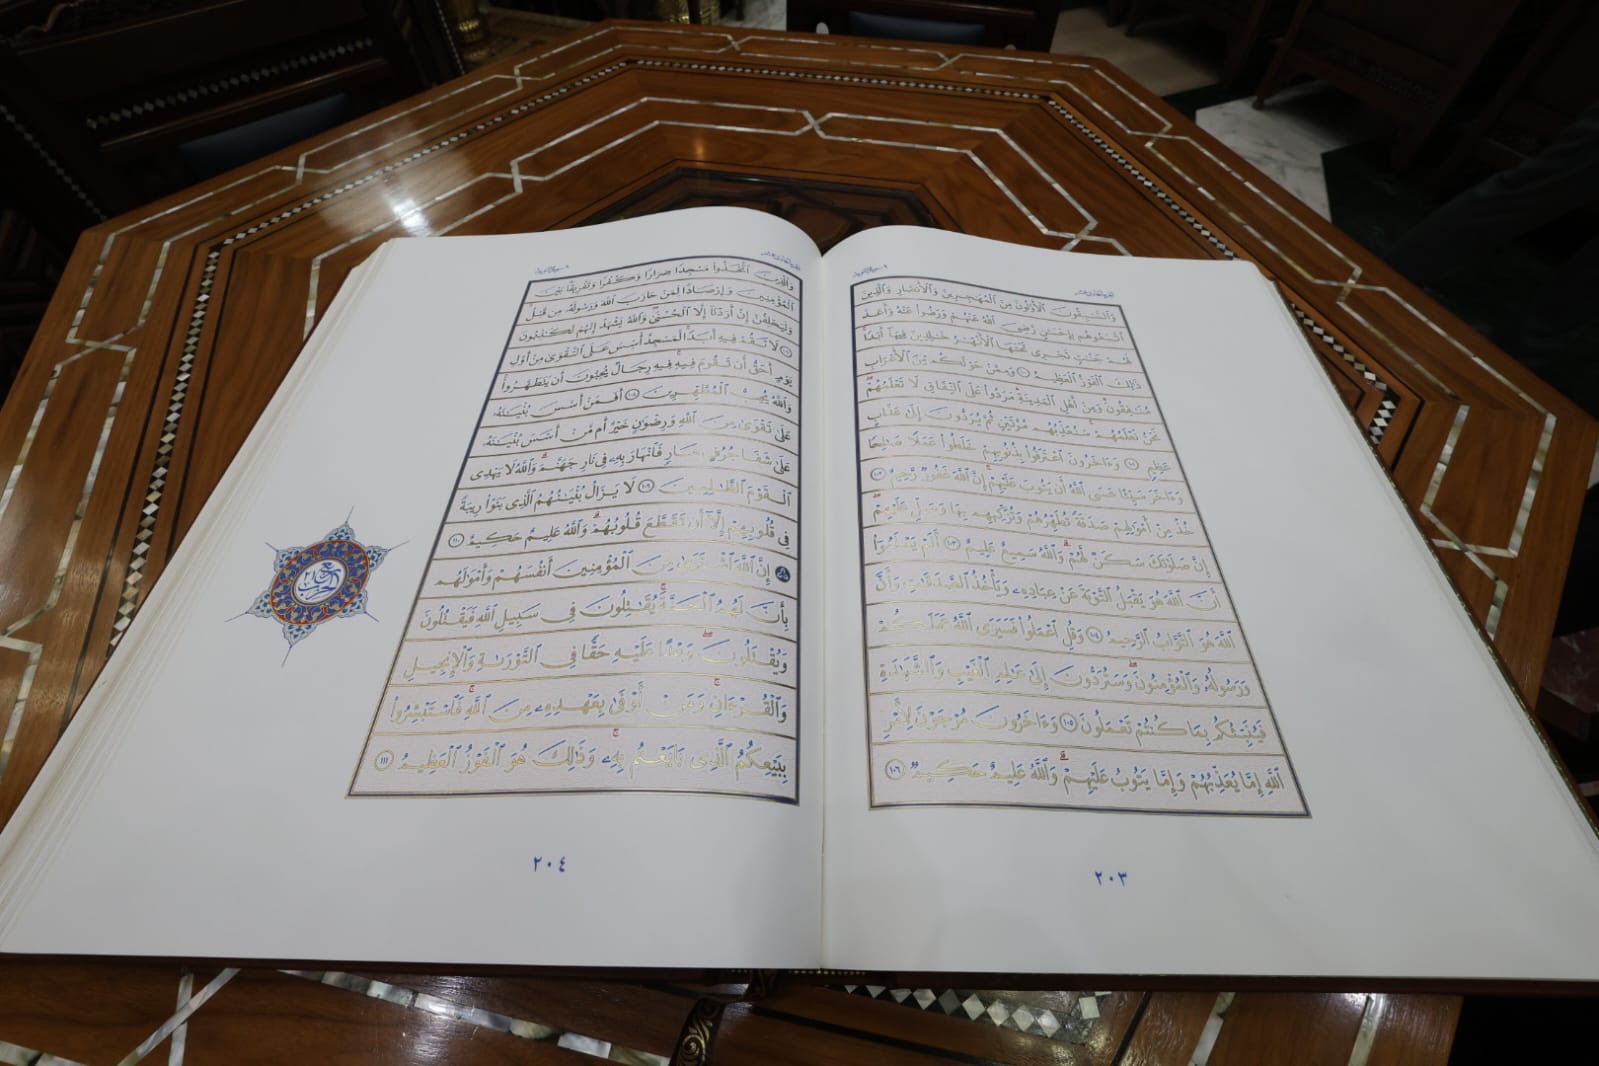 ٩ سورة التوبة
الجزء الحادي عشر
وَٱلسَّٰبِقُونَ ٱلْأَوَّلُونَ مِنَ ٱلْمُهَٰجِرِينَ وَٱلْأَنصَارِ وَٱلَّذِينَ
ٱتَّبَعُوهُم بِإِحْسَٰنٍ رَّضِىَ ٱللَّهُ عَنْهُمْ وَرَضُوا۟ عَنْهُ وَأَعَدَّ
لَهُمْ جَنَّٰتٍ تَجْرِى تَحْتَهَا ٱلْأَنْهَٰرُ خَٰلِدِينَ فِيهَآ أَبَدًا ۚ
ذَٰلِكَ ٱلْفَوْزُ ٱلْعَظِيمُ ١٠٠ وَمِمَّنْ حَوْلَكُم مِّنَ ٱلْأَعْرَابِ
مُنَٰفِقُونَ ۖ وَمِنْ أَهْلِ ٱلْمَدِينَةِ ۖ مَرَدُوا۟ عَلَى ٱلنِّفَاقِ لَا تَعْلَمُهُمْ ۖ
نَحْنُ نَعْلَمُهُمْ ۚ سَنُعَذِّبُهُم مَّرَّتَيْنِ ثُمَّ يُرَدُّونَ إِلَىٰ عَذَابٍ
عَظِيمٍ ١٠١ وَءَاخَرُونَ ٱعْتَرَفُوا۟ بِذُنُوبِهِمْ خَلَطُوا۟ عَمَلًا صَٰلِحًا
وَءَاخَرَ سَيِّئًا عَسَى ٱللَّهُ أَن يَتُوبَ عَلَيْهِمْ ۚ إِنَّ ٱللَّهَ غَفُورٌ رَّحِيمٌ ١٠٢
خُذْ مِنْ أَمْوَٰلِهِمْ صَدَقَةً تُطَهِّرُهُمْ وَتُزَكِّيهِم بِهَا وَصَلِّ عَلَيْهِمْ ۖ
إِنَّ صَلَوٰتَكَ سَكَنٌ لَّهُمْ ۗ وَٱللَّهُ سَمِيعٌ عَلِيمٌ ١٠٣ أَلَمْ يَعْلَمُوٓا۟
أَنَّ ٱللَّهَ هُوَ يَقْبَلُ ٱلتَّوْبَةَ عَنْ عِبَادِهِۦ وَيَأْخُذُ ٱلصَّدَقَٰتِ وَأَنَّ
ٱللَّهَ هُوَ ٱلتَّوَّابُ ٱلرَّحِيمُ ١٠٤ وَقُلِ ٱعْمَلُوا۟ فَسَيَرَى ٱللَّهُ عَمَلَكُمْ
وَرَسُولُهُۥ وَٱلْمُؤْمِنُونَ ۖ وَسَتُرَدُّونَ إِلَىٰ عَٰلِمِ ٱلْغَيْبِ وَٱلشَّهَٰدَةِ
فَيُنَبِّئُكُم بِمَا كُنتُمْ تَعْمَلُونَ ١٠٥ وَءَاخَرُونَ مُرْجَوْنَ لِأَمْرِ
ٱللَّهِ إِمَّا يُعَذِّبُهُمْ وَإِمَّا يَتُوبُ عَلَيْهِمْ ۗ وَٱللَّهُ عَلِيمٌ حَكِيمٌ ١٠٦
٢٠٣
الجزء الحادي عشر
٩ سورة التوبة
وَٱلَّذِينَ ٱتَّخَذُوا۟ مَسْجِدًا ضِرَارًا وَكُفْرًا وَتَفْرِيقًۢا بَيْنَ
ٱلْمُؤْمِنِينَ وَإِرْصَادًا لِّمَنْ حَارَبَ ٱللَّهَ وَرَسُولَهُۥ مِن قَبْلُ ۚ
وَلَيَحْلِفُنَّ إِنْ أَرَدْنَآ إِلَّا ٱلْحُسْنَىٰ ۖ وَٱللَّهُ يَشْهَدُ إِنَّهُمْ لَكَٰذِبُونَ
١٠٧ لَا تَقُمْ فِيهِ أَبَدًا ۚ لَّمَسْجِدٌ أُسِّسَ عَلَى ٱلتَّقْوَىٰ مِنْ أَوَّلِ
يَوْمٍ أَحَقُّ أَن تَقُومَ فِيهِ ۚ فِيهِ رِجَالٌ يُحِبُّونَ أَن يَتَطَهَّرُوا۟ ۚ
وَٱللَّهُ يُحِبُّ ٱلْمُطَّهِّرِينَ ١٠٨ أَفَمَنْ أَسَّسَ بُنْيَٰنَهُۥ
عَلَىٰ تَقْوَىٰ مِنَ ٱللَّهِ وَرِضْوَٰنٍ خَيْرٌ أَم مَّنْ أَسَّسَ بُنْيَٰنَهُۥ
عَلَىٰ شَفَا جُرُفٍ هَارٍ فَٱنْهَارَ بِهِۦ فِى نَارِ جَهَنَّمَ ۗ وَٱللَّهُ لَا يَهْدِى
ٱلْقَوْمَ ٱلظَّٰلِمِينَ ١٠٩ لَا يَزَالُ بُنْيَٰنُهُمُ ٱلَّذِى بَنَوْا۟ رِيبَةً
فِى قُلُوبِهِمْ إِلَّآ أَن تَقَطَّعَ قُلُوبُهُمْ ۗ وَٱللَّهُ عَلِيمٌ حَكِيمٌ ١١٠
إِنَّ ٱللَّهَ ٱشْتَرَىٰ مِنَ ٱلْمُؤْمِنِينَ أَنفُسَهُمْ وَأَمْوَٰلَهُم
بِأَنَّ لَهُمُ ٱلْجَنَّةَ ۚ يُقَٰتِلُونَ فِى سَبِيلِ ٱللَّهِ فَيَقْتُلُونَ
وَيُقْتَلُونَ ۖ وَعْدًا عَلَيْهِ حَقًّا فِى ٱلتَّوْرَىٰةِ وَٱلْإِنجِيلِ
وَٱلْقُرْءَانِ ۚ وَمَنْ أَوْفَىٰ بِعَهْدِهِۦ مِنَ ٱللَّهِ ۚ فَٱسْتَبْشِرُوا۟
بِبَيْعِكُمُ ٱلَّذِى بَايَعْتُم بِهِۦ ۚ وَذَٰلِكَ هُوَ ٱلْفَوْزُ ٱلْعَظِيمُ ١١١
٢٠٤